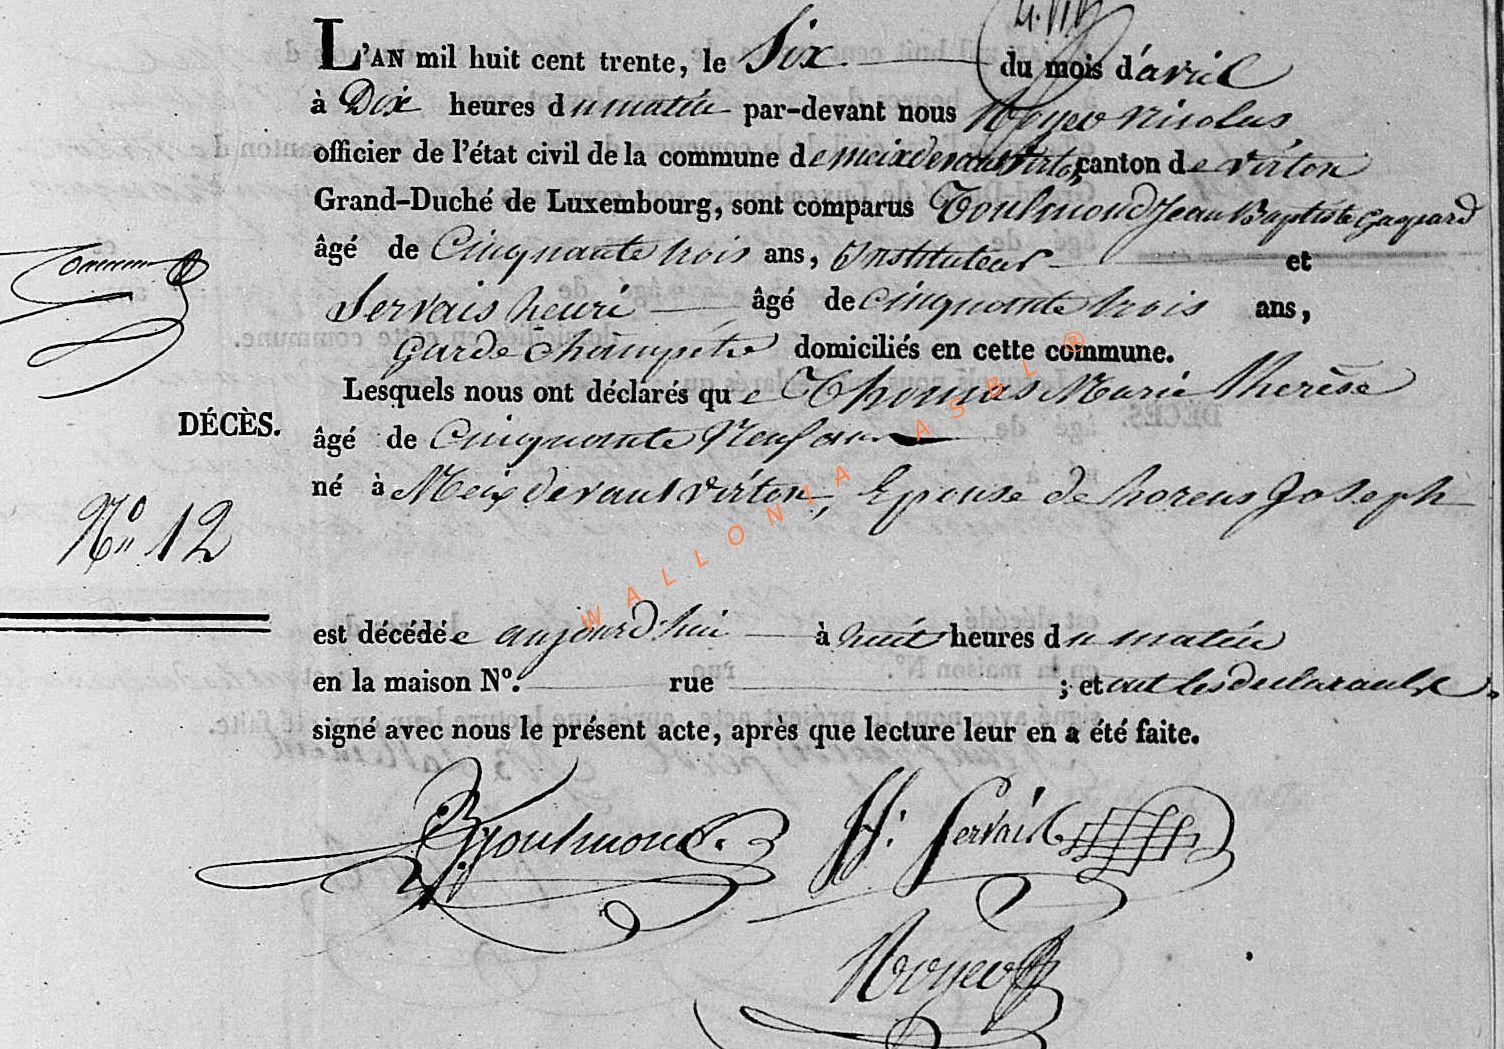 L'AN mil huit cent trente, le Six du mois d'avril
à Dix heures du matin par-devant nous Noyer Nicolas
officier de l'état civil de la commune de meixdevantvirton, canton de virton
Grand-Duché de Luxembourg, sont comparus Toulmond Jean Baptiste Gaspard
âgé de Cinquante trois ans, Instituteur et
Servais henri âgé de cinquante trois ans,
garde champetre domiciliés en cette commune.
Lesquels nous ont déclarés que Thomas Marie therèse
DÉCÈS.
âgé de Cinquante Neuf ans
né à Meix devant virton, Epouse de Joseph
No 12
est décédée aujourd'hui à huit heures du matin
en la maison No. rue ; et ont les declarants
signé avec nous le présent acte, après que lecture leur en a été faite.
Toulmond.
H. Servais
Noyer
WALLONIA ASBL ®